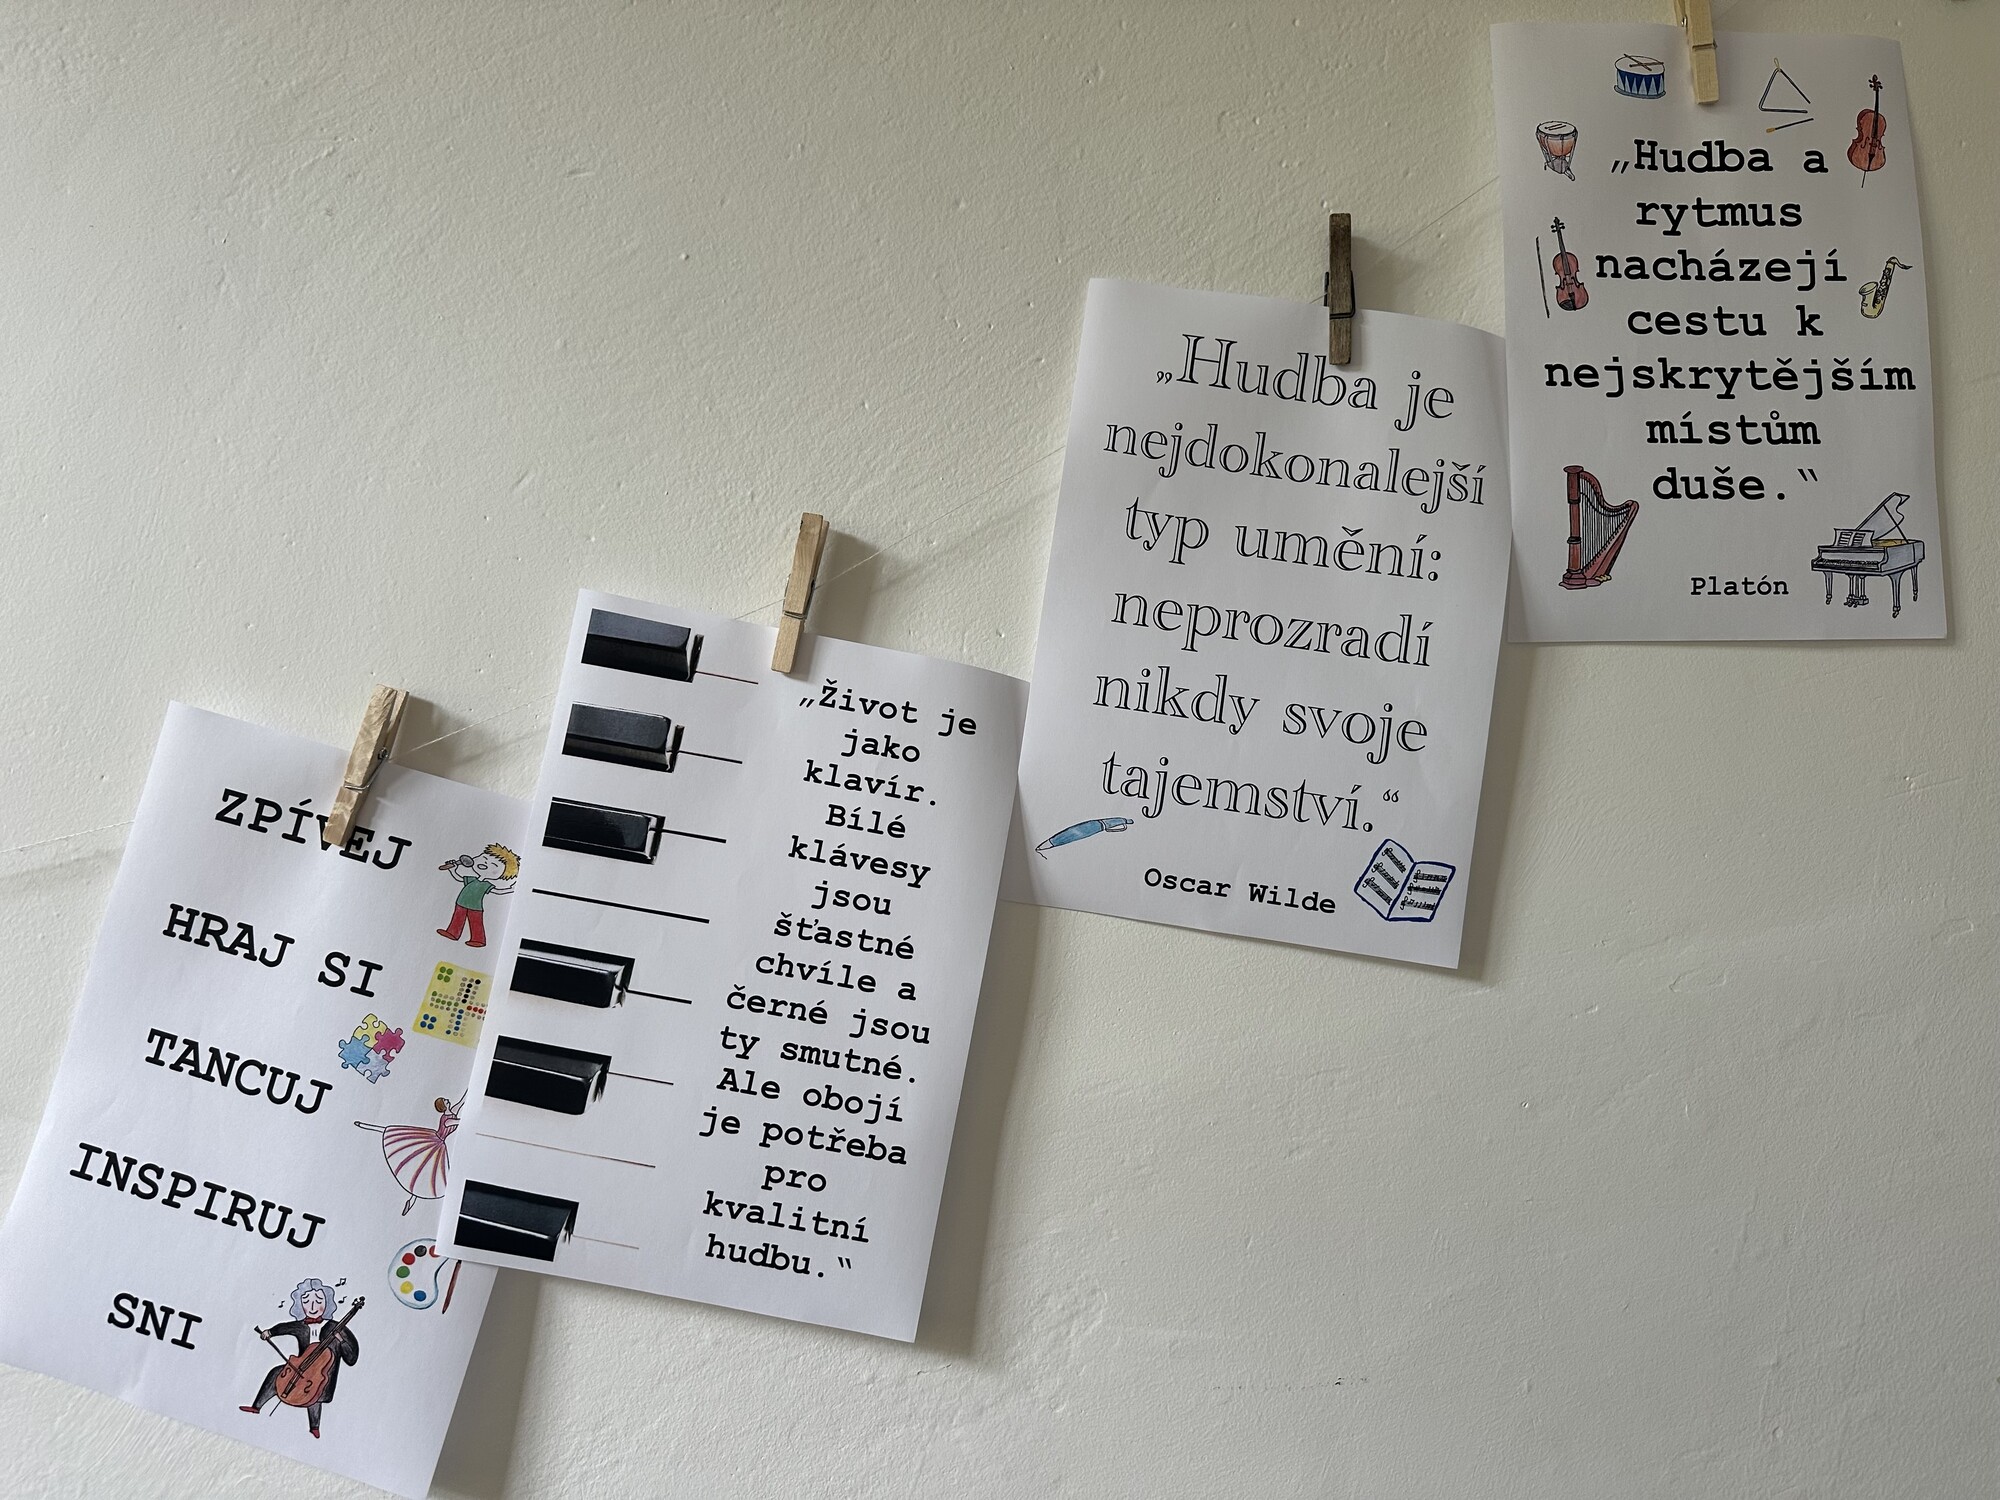 ZPÍVEJ
HRAJ SI
TANCUJ
INSPIRUJ
SNI
„Život je
jako
klavír.
Bílé
klávesy
jsou
šťastné
chvíle a
černé jsou
ty smutné.
Ale obojí
je potřeba
pro
kvalitní
hudbu.‟
„Hudba je
nejdokonalejší
typ umění:
neprozradí
nikdy svoje
tajemství.“
Oscar Wilde
„Hudba a
rytmus
nacházejí
cestu k
nejskrytějším
místům
duše.‟
Platón